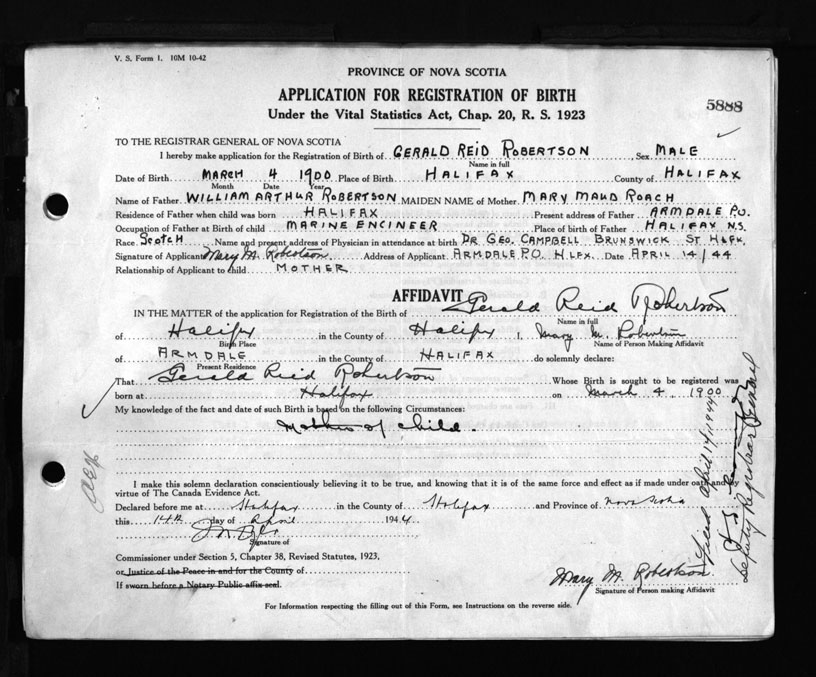 V. S. Form 1. 10M 10-42
PROVINCE OF NOVA SCOTIA
APPLICATION FOR REGISTRATION OF BIRTH
5888
Under the Vital Statistics Act, Chap. 20, R. S. 1923
TO THE REGISTRAR GENERAL OF NOVA SCOTIA
I hereby make application for the Registration of Birth of GERALD REID ROBERTSON, Sex MALE
Name in full
Date of Birth MARCH 4 1900 Place of Birth HALIFAX County of HALIFAX
Month Date Year
Name of Father WILLIAM ARTHUR ROBERTSON MAIDEN NAME of Mother MARY MAUD ROACH
Residence of Father when child was born HALIFAX Present address of Father ARMDALE P.O.
Occupation of Father at Birth of child MARINE ENGINEER Place of birth of Father HALIFAX N.S.
Race SCOTCH Name and present address of Physician in attendance at birth DR GEO. CAMPBELL BRUNSWICK ST HLFX.
Signature of Applicant Mary M. Robertson. Address of Applicant ARMDALE P.O. HLFX. Date APRIL 14/44
Relationship of Applicant to child MOTHER
AFFIDAVIT
IN THE MATTER of the application for Registration of the Birth of Gerald Reid Robertson
Name in full
of Halifax in the County of Halifax I, Mary M. Robertson
Birth Place Name of Person Making Affidavit
of ARMDALE in the County of HALIFAX do solemnly declare:
Present Residence
That Gerald Reid Robertson Whose Birth is sought to be registered was
born at Halifax on March 4 1900
My knowledge of the fact and date of such Birth is based on the following Circumstances:
Mother of child.
I make this solemn declaration conscientiously believing it to be true, and knowing that it is of the same force and effect as if made under oath and by
virtue of The Canada Evidence Act.
Declared before me at Halifax in the County of Halifax and Province of Nova Scotia
this 14th day of April 1944
Signature of
Commissioner under Section 5, Chapter 38, Revised Statutes, 1923,
or Justice of the Peace in and for the County of
If sworn before a Notary Public affix seal.
Mary M. Robertson.
Signature of Person making Affidavit
For Information respecting the filling out of this Form, see Instructions on the reverse side.
Filed April 14/1944
Deputy Registrar General